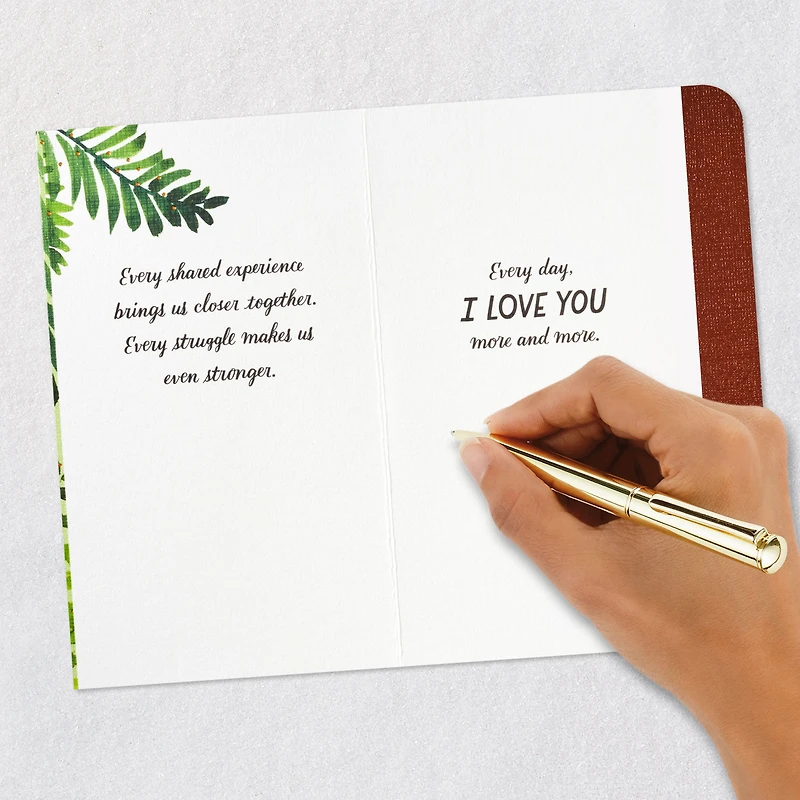 Every shared experience
brings us closer together.
Every struggle makes us
even stronger.
Every day,
I LOVE YOU
more and more.